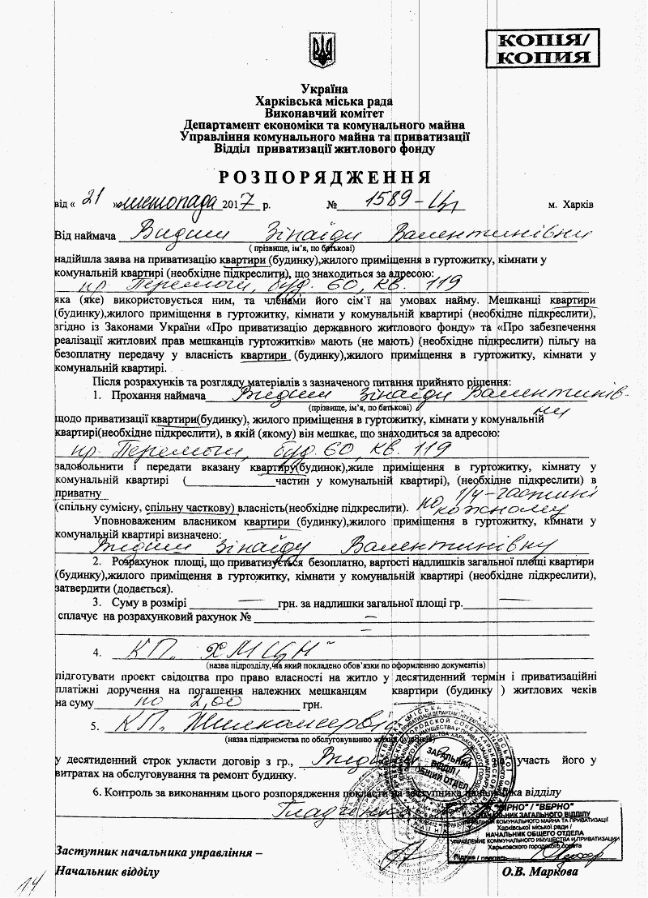 КОПІЯ/
КОПИЯ
Україна
Харківська міська рада
Виконавчий комітет
Департамент економіки та комунального майна
Управління комунального майна та приватизації
Відділ приватизації житлового фонду
РОЗПОРЯДЖЕННЯ
від « 21 » листопада 2017 р. № 1589- м. Харків
Від наймача Зінаїди Валентинівни
( прізвище, ім'я, по батькові)
надійшла заява на приватизацію квартири (будинку),жилого приміщення в гуртожитку, кімнати у
комунальній квартирі (необхідне підкреслити), що знаходиться за адресою:
пр. Перемоги, буд. 60, кв. 119
яка (яке) використовується ним, та членами його сім'ї на умовах найму. Мешканці квартири
(будинку),жилого приміщення в гуртожитку, кімнати у комунальній квартирі (необхідне підкреслити),
згідно із Законами України «Про приватизацію державного житлового фонду» та «Про забезпечення
реалізації житлових прав мешканців гуртожитків» мають (не мають) (необхідне підкреслити) пільгу на
безоплатну передачу у власність квартири (будинку),жилого приміщення в гуртожитку, кімнати у
комунальній квартирі.
Після розрахунків та розгляду матеріалів з зазначеного питання прийнято рішення:
1. Прохання наймача Зінаїди Валентинів-
ни
(прізвище, ім'я, по батькові)
щодо приватизації квартири(будинку), жилого приміщення в гуртожитку, кімнати у комунальній
квартирі(необхідне підкреслити), в якій (якому) він мешкає, що знаходиться за адресою:
пр. Перемоги, буд. 60, кв. 119
задовольнити і передати вказану квартиру(будинок),жиле приміщення в гуртожитку, кімнату у
комунальній квартирі (частин у комунальній квартирі), (необхідне підкреслити) в
приватну
(спільну сумісну, спільну часткову) власність(необхідне підкреслити). по 1/4-частині
кожному
Уповноваженим власником квартири (будинку),жилого приміщення в гуртожитку, кімнати у
комунальній квартирі визначено:
Зінаїду Валентинівну
2. Розрахунок площі, що приватизується безоплатно, вартості надлишків загальної площі квартири
(будинку),жилого приміщення в гуртожитку, кімнати у комунальній квартирі (необхідне підкреслити),
затвердити (додається).
3. Суму в розмірі грн. за надлишки загальної площі гр.
сплачує на розрахунковий рахунок №
4. КП. "ХМЦН"
(назва підрозділу,на який покладено обов'язки по оформленню документів)
підготувати проект свідоцтва про право власності на житло у десятиденний термін і приватизаційні
платіжні доручення на погашення належних мешканцям квартири (будинку ) житлових чеків
на суму по 2,00 грн.
5. КП. Жилкомсервіс
(назва підприємства по обслуговуванню
у десятиденний строк укласти договір з гр., участь його у
витратах на обслуговування та ремонт будинку.
6. Контроль за виконанням цього розпорядження покласти на заступника начальника відділу
ЗАГАЛЬНИЙ
ВІДДІЛ /
ОБЩИЙ ОТДЕЛ
"ВІРНО" / "ВЕРНО"
НАЧАЛЬНИК ЗАГАЛЬНОГО ВІДДІЛУ
УПРАВЛІННЯ КОМУНАЛЬНОГО МАЙНА ТА ПРИВАТИЗАЦІЇ
Харківської міської ради /
НАЧАЛЬНИК ОБЩЕГО ОТДЕЛА
УПРАВЛЕНИЕ КОММУНАЛЬНОГО ИМУЩЕСТВА И ПРИВАТИЗАЦИИ
Харьковского городского совета
Підпис / подпись
Заступник начальника управління –
Начальник відділу О.В. Маркова
14